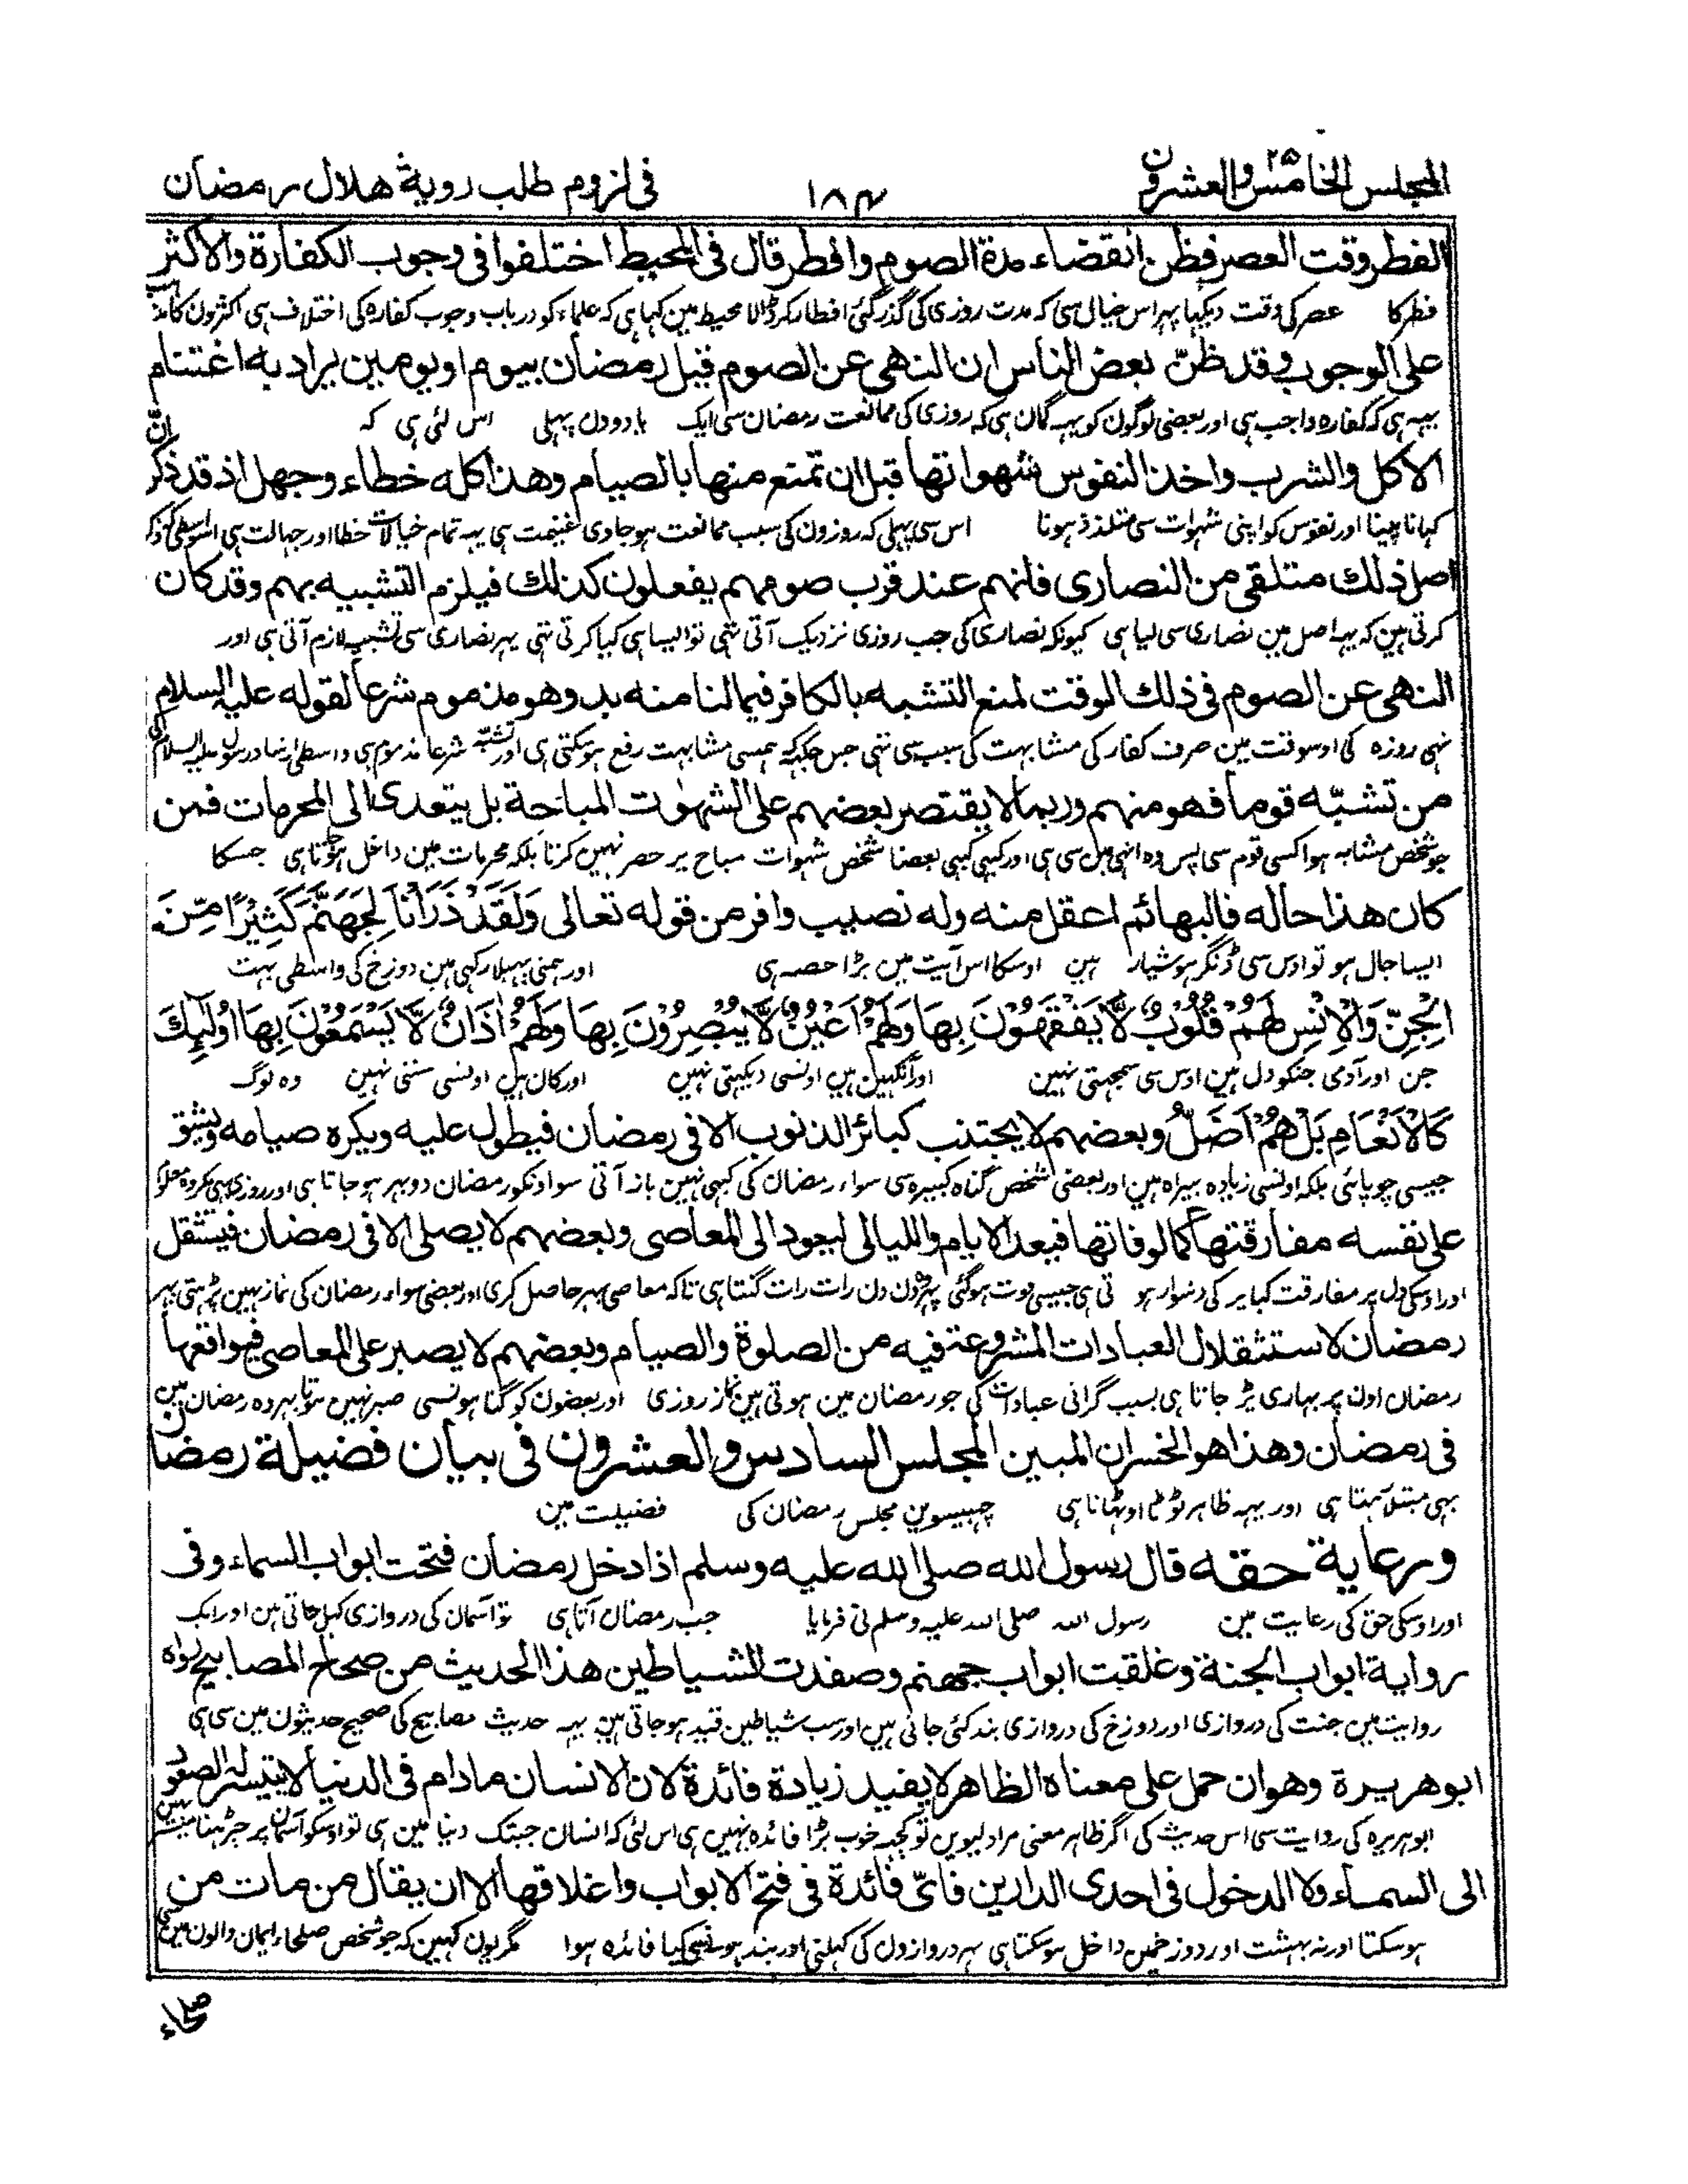 المجلس الخامس والعشرون ۲۵
۱۸۴
فی لزوم طلب رویة هلال رمضان
الفطر وقت العصر فظن انقضاء مدة الصوم وافطر قال فی المحیط اختلفوا فی وجوب الکفارة والاکثر
فطر کا عصر کی وقت دیکہا پہر اس خیال سی کہ مدت روزی کی گذر گئی افطار کر ڈالا محیط مین کہا ہی کہ علماء کو در باب وجوب کفارہ کی اختلاف ہی اکثرون کا مذہب
علی الوجوب وقد ظنّ بعض الناس ان النهی عن الصوم قبل رمضان بیوم او یومین یراد به اغتنام
یہہ ہی کہ کفارہ واجب ہی اور بعضی لوگون کو یہہ گمان ہی کہ روزی کی ممانعت رمضان سی ایک یا دو دن پہلی اس لئی ہی کہ
الاکل والشرب واخذ النفوس شهواتها قبل ان تمنع منها بالصیام وهذا کله خطاء وجهل اذ قد ذکر انّ
کہانا پینا اور نفوس کو اپنی شہوات سی متلذذ ہونا اس سی پہلی کہ روزون کی سبب ممانعت ہو جاوی غنیمت ہی یہہ تمام خیالات خطا اور جہالت ہی اسواسطی کہ ذکر
اصل ذلك متلقی من النصاری فانهم عند قرب صومهم یفعلون کذلك فیلزم التشبیه بهم وقد کان
کرتی ہین کہ یہہ اصل مین نصاری سی لیا ہی کیونکہ نصاری کی جب روزی نزدیک آتی تہی تو ایسا ہی کیا کرتی تہی پہر نصاری سی تشبیہ لازم آتی ہی اور
النهی عن الصوم فی ذلك الوقت لمنع التشبه بالکافر فیما لنا منه بد وهو مذموم شرعا لقوله علیه السلام
نہی روزہ کی اوسوقت مین صرف کفار کی مشابہت کی سبب سی تہی جس جگہہ ہمسی مشابہت رفع ہو سکتی ہی اور تشبہ شرعا مذموم ہی واسطی ارشاد رسول علیہ السلام کی
من تشبّه قوما فهو منهم وربما لا یقتصر بعضهم علی الشهوات المباحة بل یتعدی الی المحرمات فمن
جو شخص مشابہ ہوا کسی قوم سی پس وہ انہی مین سی ہی اور کبہی کبہی بعضا شخص شہوات مباح پر حصر نہین کرتا بلکہ محرمات مین داخل ہو جاتا ہی جسکا
کان هذا حاله فالبهائم اعقل منه وله نصیب وافر من قوله تعالی وَلَقَدْ ذَرَأْنَا لِجَهَنَّمَ کَثِیْرًا مِّنَ
ایسا حال ہو تو اوس سی ڈنگر ہوشیار ہین اوسکا اس آیت مین بڑا حصہ ہی اور ہمنی پہیلا رکہی ہین دوزخ کی واسطی بہت
الْجِنِّ وَالْاِنْسِ لَهُمْ قُلُوْبٌ لَّا یَفْقَهُوْنَ بِهَا وَلَهُمْ اَعْیُنٌ لَّا یُبْصِرُوْنَ بِهَا وَلَهُمْ اٰذَانٌ لَّا یَسْمَعُوْنَ بِهَا اُولٰئِكَ
جن اور آدمی جنکو دل ہین اوس سی سمجہتی نہین اور آنکہین ہین اونسی دیکہتی نہین اور کان ہین اونسی سنتی نہین وہ لوگ
کَالْاَنْعَامِ بَلْ هُمْ اَضَلُّ وبعضهم لا یجتنب کبائر الذنوب الا فی رمضان فیطول علیه ویکره صیامه ویشق
جیسی چوپائی بلکہ اونسی زیادہ بیراہ ہین اور بعضی شخص گناہ کبیرہ سی سواء رمضان کی کبہی نہین باز آتی سو اونکو رمضان دوبہر ہو جاتا ہی اور روزی بہی مکروہ معلوم
علی نفسه مفارقتها کمالوفاتها فیعد الایام واللیالی لیعود الی المعاصی وبعضهم لا یصلی الا فی رمضان فیثقل
اور اوسکی دل پر مفارقت کبایر کی دشوار ہو تی ہی جیسی فوت ہو گئی پہر وہ دن دن رات رات گنتا ہی تاکہ معاصی پہر حاصل کری اور بعضی سواء رمضان کی نماز نہین پڑہتی پہر
رمضان لاستثقلال العبادات المشروعة فیه من الصلوة والصیام وبعضهم لا یصبر علی المعاصی فیواقعها
رمضان اون پر بہاری پڑ جاتا ہی بسبب گرانی عبادات کی جو رمضان مین ہوتی ہین نماز روزی اور بعضون کو گناہونسی صبر نہین ہوتا پہر وہ رمضان مین
فی رمضان وهذا هو الخسران المبین المجلس السادس والعشرون فی بیان فضیلة رمضان
بہی مبتلا رہتا ہی اور یہہ ظاہر ٹوٹا اوٹہانا ہی چہبیسوین مجلس رمضان کی فضیلت مین
ورعایة حقه قال رسول الله صلی الله علیه وسلم اذا دخل رمضان فتحت ابواب السماء وفی
اور اوسکی حق کی رعایت مین رسول اللہ صلی اللہ علیہ وسلم نی فرمایا جب رمضان آتا ہی تو آسمان کی دروازی کہل جاتی ہین اور ایک
روایة ابواب الجنة وغلقت ابواب جهنم وصفدت الشیاطین هذا الحدیث من صحاح المصابیح رواه
روایت مین جنت کی دروازی اور دوزخ کی دروازی بند کئی جاتی ہین اور سب شیاطین قید ہو جاتی ہین یہہ حدیث مصابیح کی صحیح حدیثون مین سی ہی
ابو هریرة وهو ان حمل علی معناه الظاهر لا یفید زیادة فائدة لان الانسان ما دام فی الدنیا لا یتیسر له الصعود
ابو ہریرہ کی روایت سی اس حدیث کی اگر ظاہر معنی مراد لیوین تو کچہہ خوب بڑا فائدہ نہین ہی اس لئی کہ انسان جبتک دنیا مین ہی تو اوسکو آسمان پر چڑہنا میسر نہین
الی السماء ولا الدخول فی احدی الدارین فایّ فائدة فی فتح الابواب واغلاقها الا ان یقال من مات من
ہو سکتا اور نہ بہشت اور دوزخ مین داخل ہو سکتا ہی پہر دروازون کی کہلنی اور بند ہونیسی کیا فائدہ ہوا مگر یون کہین کہ جو شخص صلحاء ایمان والون مین سی
صلحاء